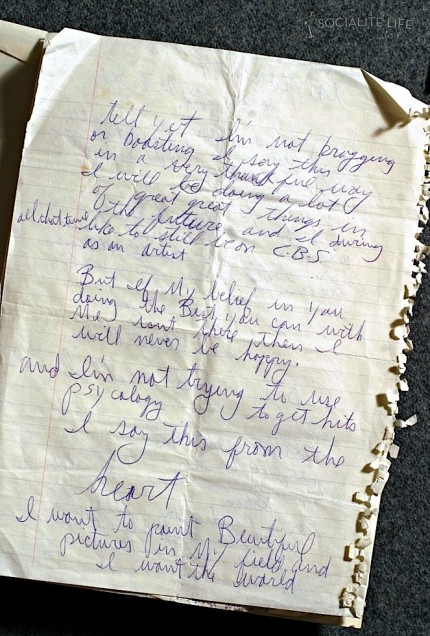 SOCIALITE LIFE
tell yet I'm not bragging
or boasting I say this
in a very thankful way
I will be doing a lot
of great great things in
the future and I during
all that time like to still be on C.B.S
as an artist
But if My belief in you
doing the Best you can with
Me isnt there then I
will never be happy.
and I'm not trying to use
psycology to get hits
I say this from the
heart
I want to paint Beutiful
pictures in My field and
I want the World